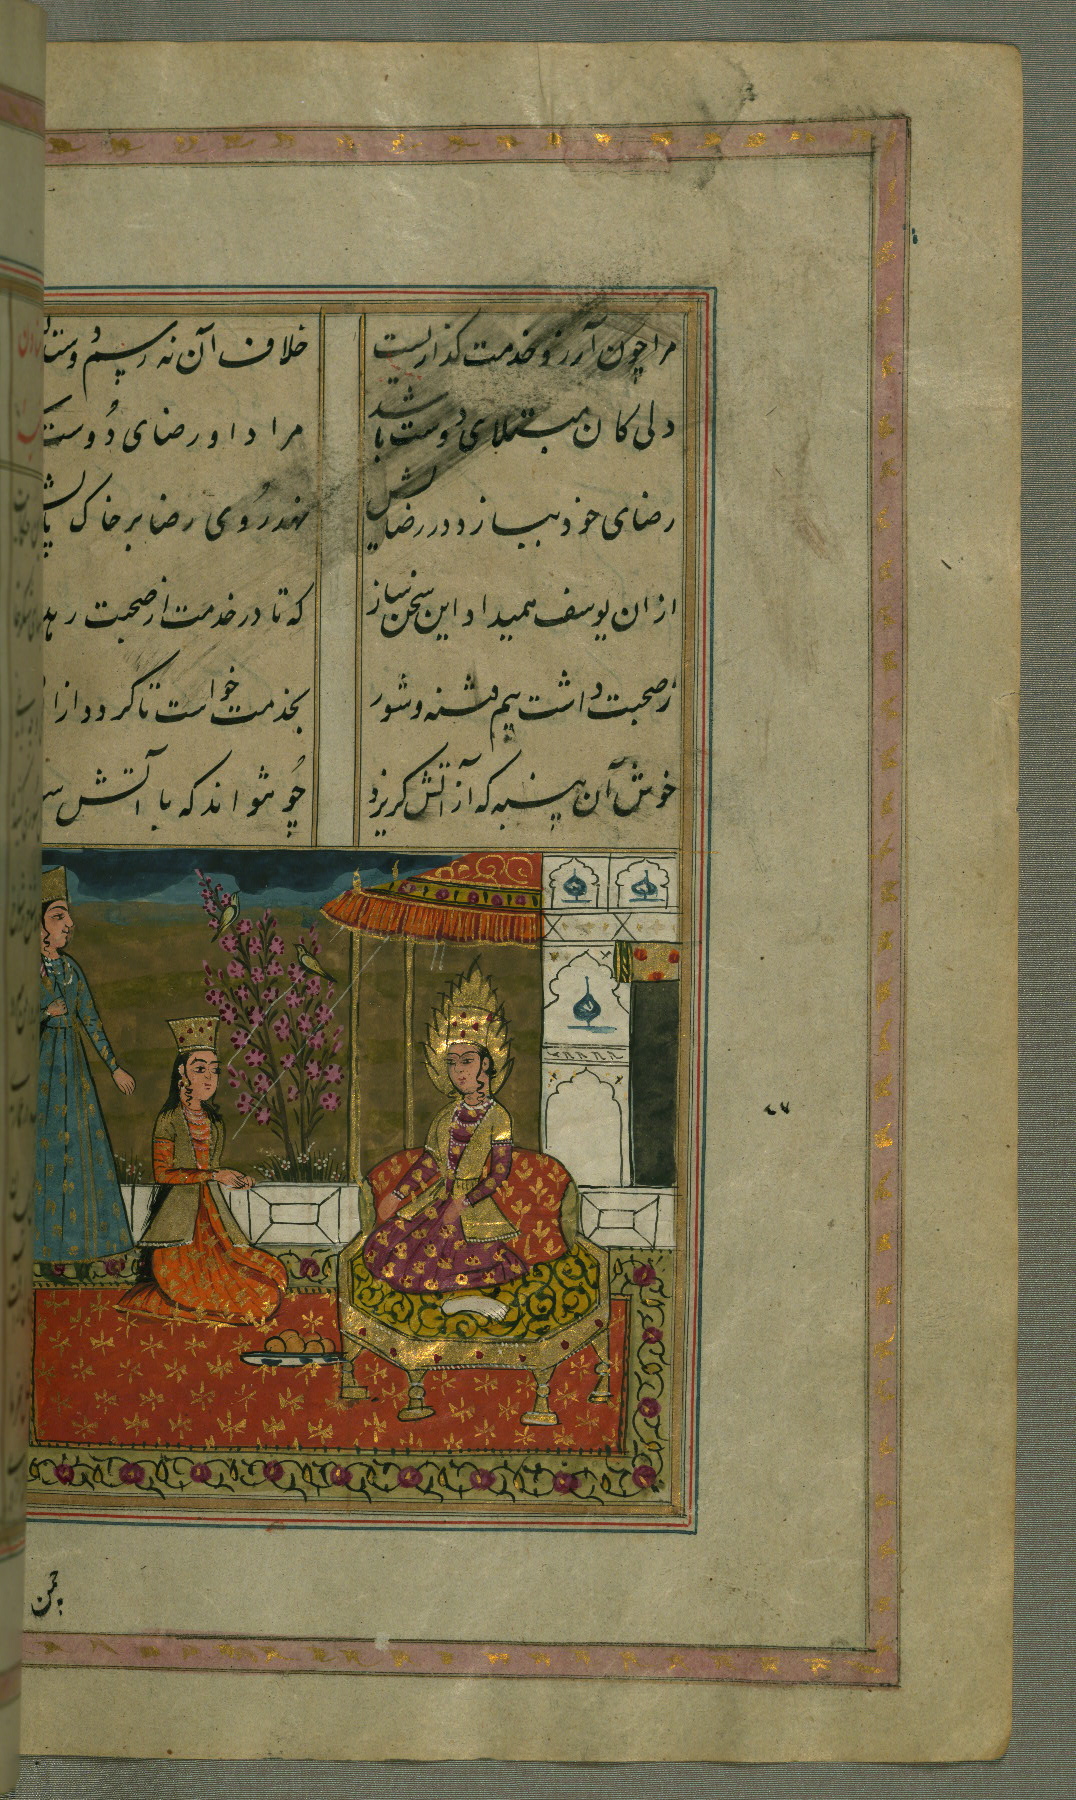 مرا چون آرزو خدمت کذاریست
خلاف آن نه رسم
دلی کان مبتلای دوست باشد
مراد او رضای دوست
رضای خود ببازد در رضایش
نهد روی رضا بر خاک
ازان یوسف همیداد این سخن ساز
که تا در خدمت از صحبت رهد
ز صحبت داشت بیم فتنه و شور
بخدمت خواست تا کردد ازا
خوش آن پنبه که از آتش کریزد
چو نتواند که با آتش
چمن